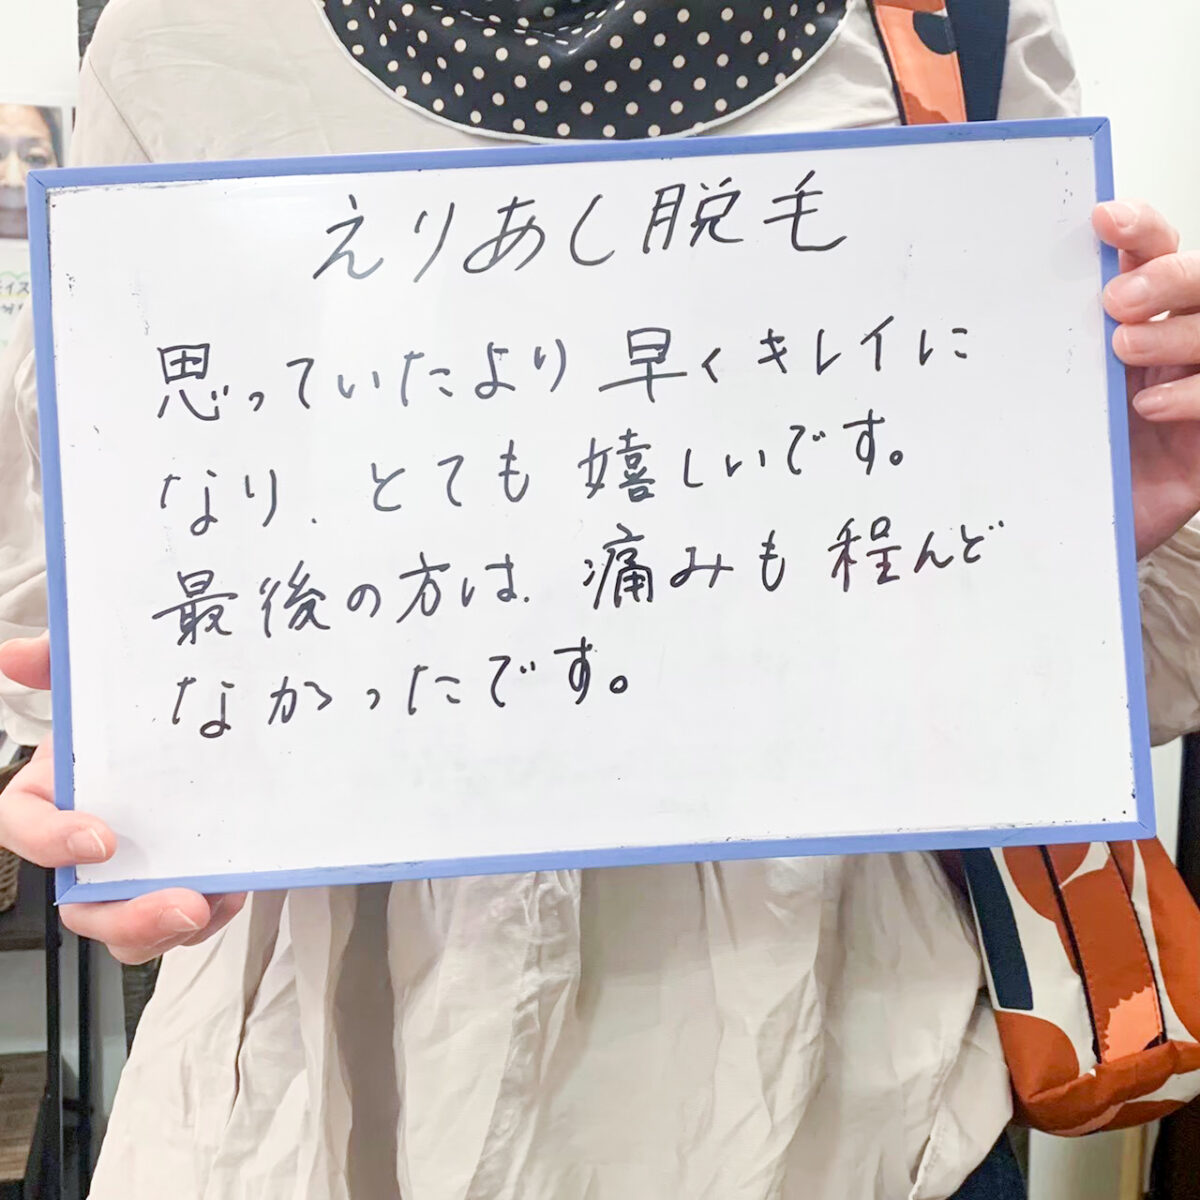 えりあし脱毛
思っていたより早くキレイに
なり、とても嬉しいです。
最後の方は、痛みも程んど
なかったです。